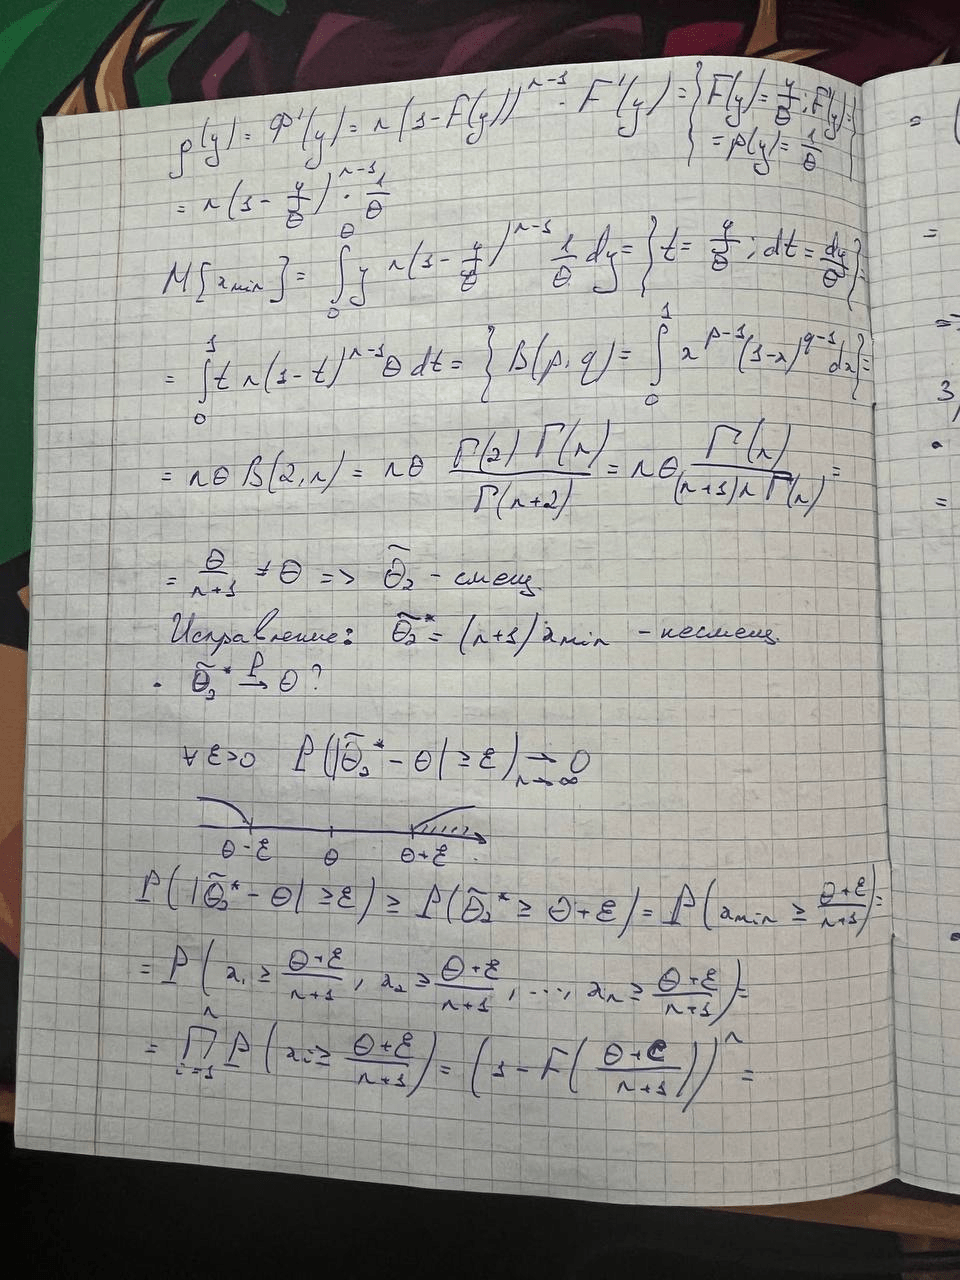 ρ(y) = Φ'(y) = n(1-F(y))^{n-1} · F'(y) = {F(y) = y/θ; F'(y) =
= p(y) = 1/θ}
= n(1 - y/θ)^{n-1} · 1/θ
M[x_{min}] = ∫_0^θ y n(1 - y/θ)^{n-1} 1/θ dy = {t = y/θ; dt = dy/θ} =
= ∫_0^1 t n(1-t)^{n-1} θ dt = {B(p,q) = ∫_0^1 x^{p-1}(1-x)^{q-1} dx} =
= nθ B(2,n) = nθ Γ(2)Γ(n)/Γ(n+2) = nθ Γ(n)/((n+1)nΓ(n)) =
= θ/(n+1) ≠ θ => θ̃_2 - смещ
Исправление: θ̃_2* = (n+1)x_{min} - несмещ.
· θ̃_2* →^P θ?
∀ε>0 P(|θ̃_2* - θ| ≥ ε) →_{n→∞} 0
θ-ε θ θ+ε
P(|θ̃_2* - θ| ≥ ε) ≥ P(θ̃_2* ≥ θ+ε) = P(x_{min} ≥ (θ+ε)/(n+1)) =
= P(x_1 ≥ (θ+ε)/(n+1), x_2 ≥ (θ+ε)/(n+1), ..., x_n ≥ (θ+ε)/(n+1)) =
= ∏_{i=1}^n P(x_i ≥ (θ+ε)/(n+1)) = (1 - F((θ+ε)/(n+1)))^n =
=
=
=>
3
=